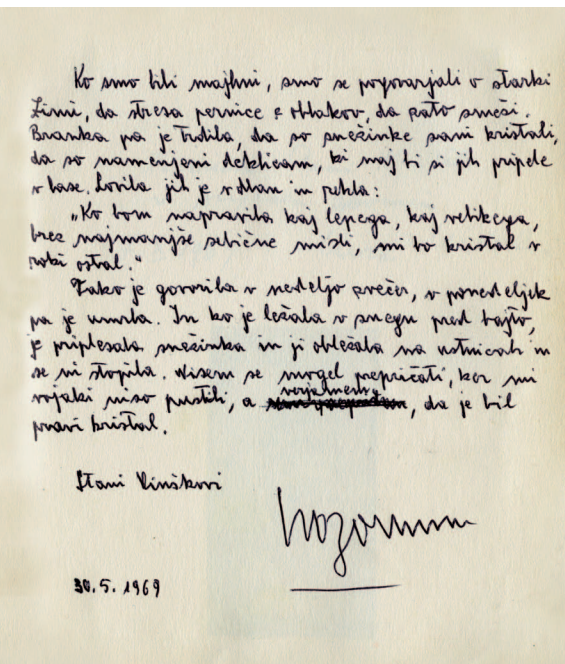 Ko smo bili majhni, smo se pogovarjali o starki
Zimi, da stresa pernice z oblakov, da zato sneži.
Branka pa je trdila, da so snežinke sami kristali,
da so namenjeni deklicam, ki naj bi si jih pripele
v lase. Lovila jih je v dlan in rekla:
"Ko bom napravila kaj lepega, kaj velikega,
brez najmanjše sebične misli, mi bo kristal v
roki ostal."
Tako je govorila v nedeljo zvečer, v ponedeljek
pa je umrla. In ko je ležala v snegu pred bajto,
je priplesala snežinka in ji obležala na ustnicah in
se ni stopila. Nisem se mogel prepričati, ker mi
vojaki niso pustili, a verjamem, da je bil
pravi kristal.
Stani Vinškovi
30.5.1969